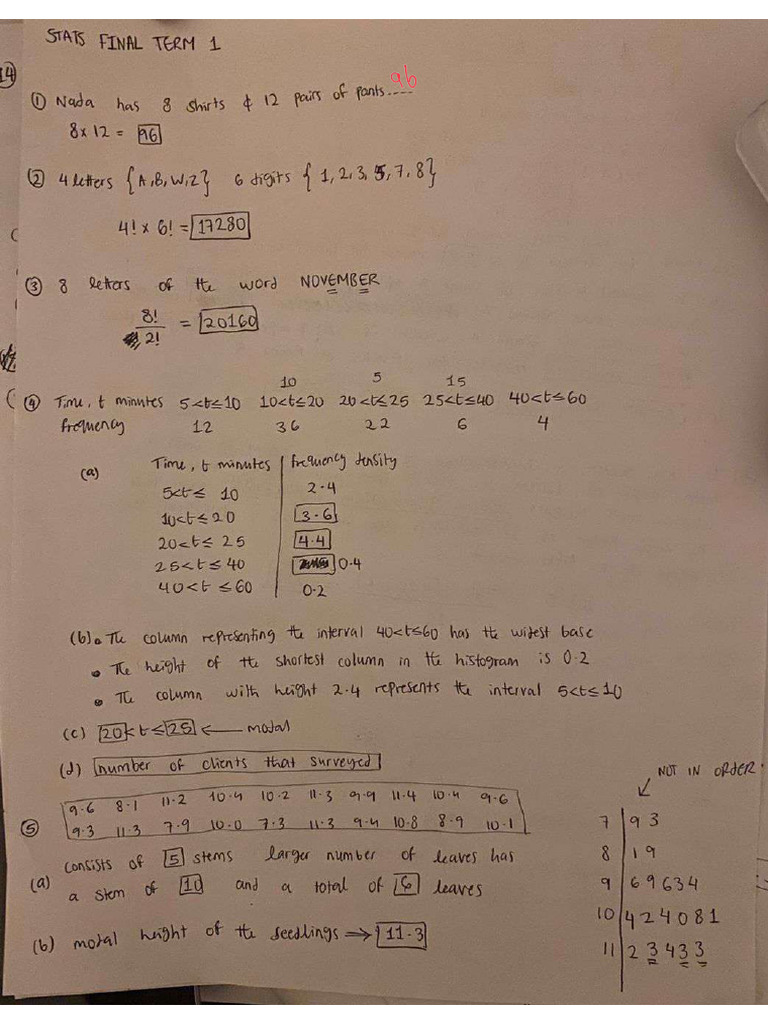 STATS FINAL TERM 1
14
① Nada has 8 shirts & 12 pairs of pants.... 96
8 x 12 = 96
② 4 letters {A, B, W, Z} 6 digits {1, 2, 3, 5, 7, 8}
4! x 6! = 17280
③ 8 letters of the word NOVEMBER
8!
2! = 20160
10 5 15
④ Time, t minutes 5<t≤10 10<t≤20 20<t≤25 25<t≤40 40<t≤60
frequency 12 36 22 6 4
(a) Time, t minutes frequency density
5<t≤ 10 2.4
10<t≤20 3.6
20<t≤ 25 4.4
25<t≤ 40 0.4
40<t ≤60 0.2
(b) • The column representing the interval 40<t≤60 has the widest base
• The height of the shortest column in the histogram is 0.2
• The column with height 2.4 represents the interval 5<t≤10
(c) 20<t≤25 ← modal
(d) number of clients that surveyed
NOT IN ORDER.
9.6 8.1 11.2 10.4 10.2 11.3 9.9 11.4 10.4 9.6
⑤ 9.3 11.3 7.9 10.0 7.3 11.3 9.4 10.8 8.9 10.1
(a) consists of 5 stems larger number of leaves has
a stem of 10 and a total of 6 leaves
(b) modal height of the seedlings → 11.3
7 | 9 3
8 | 1 9
9 | 6 9 6 3 4
10 | 4 2 4 0 8 1
11 | 2 3 4 3 3